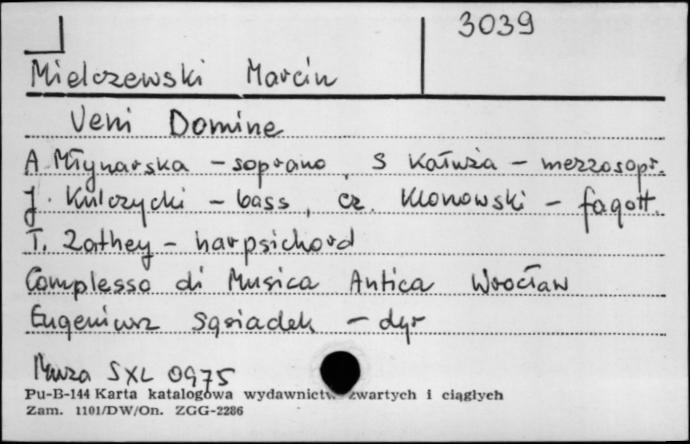 3039
Mielczewski Marcin
Veni Domine
A Młynarska – soprano, S Kałuża – mezzosopr.
J. Kulczycki – bass, Cz. Klonowski – fagott.
T. Zathey – harpsichord
Complesso di Musica Antica Wrocław
Eugeniusz Sąsiadek – dyr
Muza SXL 0975
Pu-B-144 Karta katalogowa wydawnictw zwartych i ciągłych
Zam. 1101/DW/On. ZGG-2286